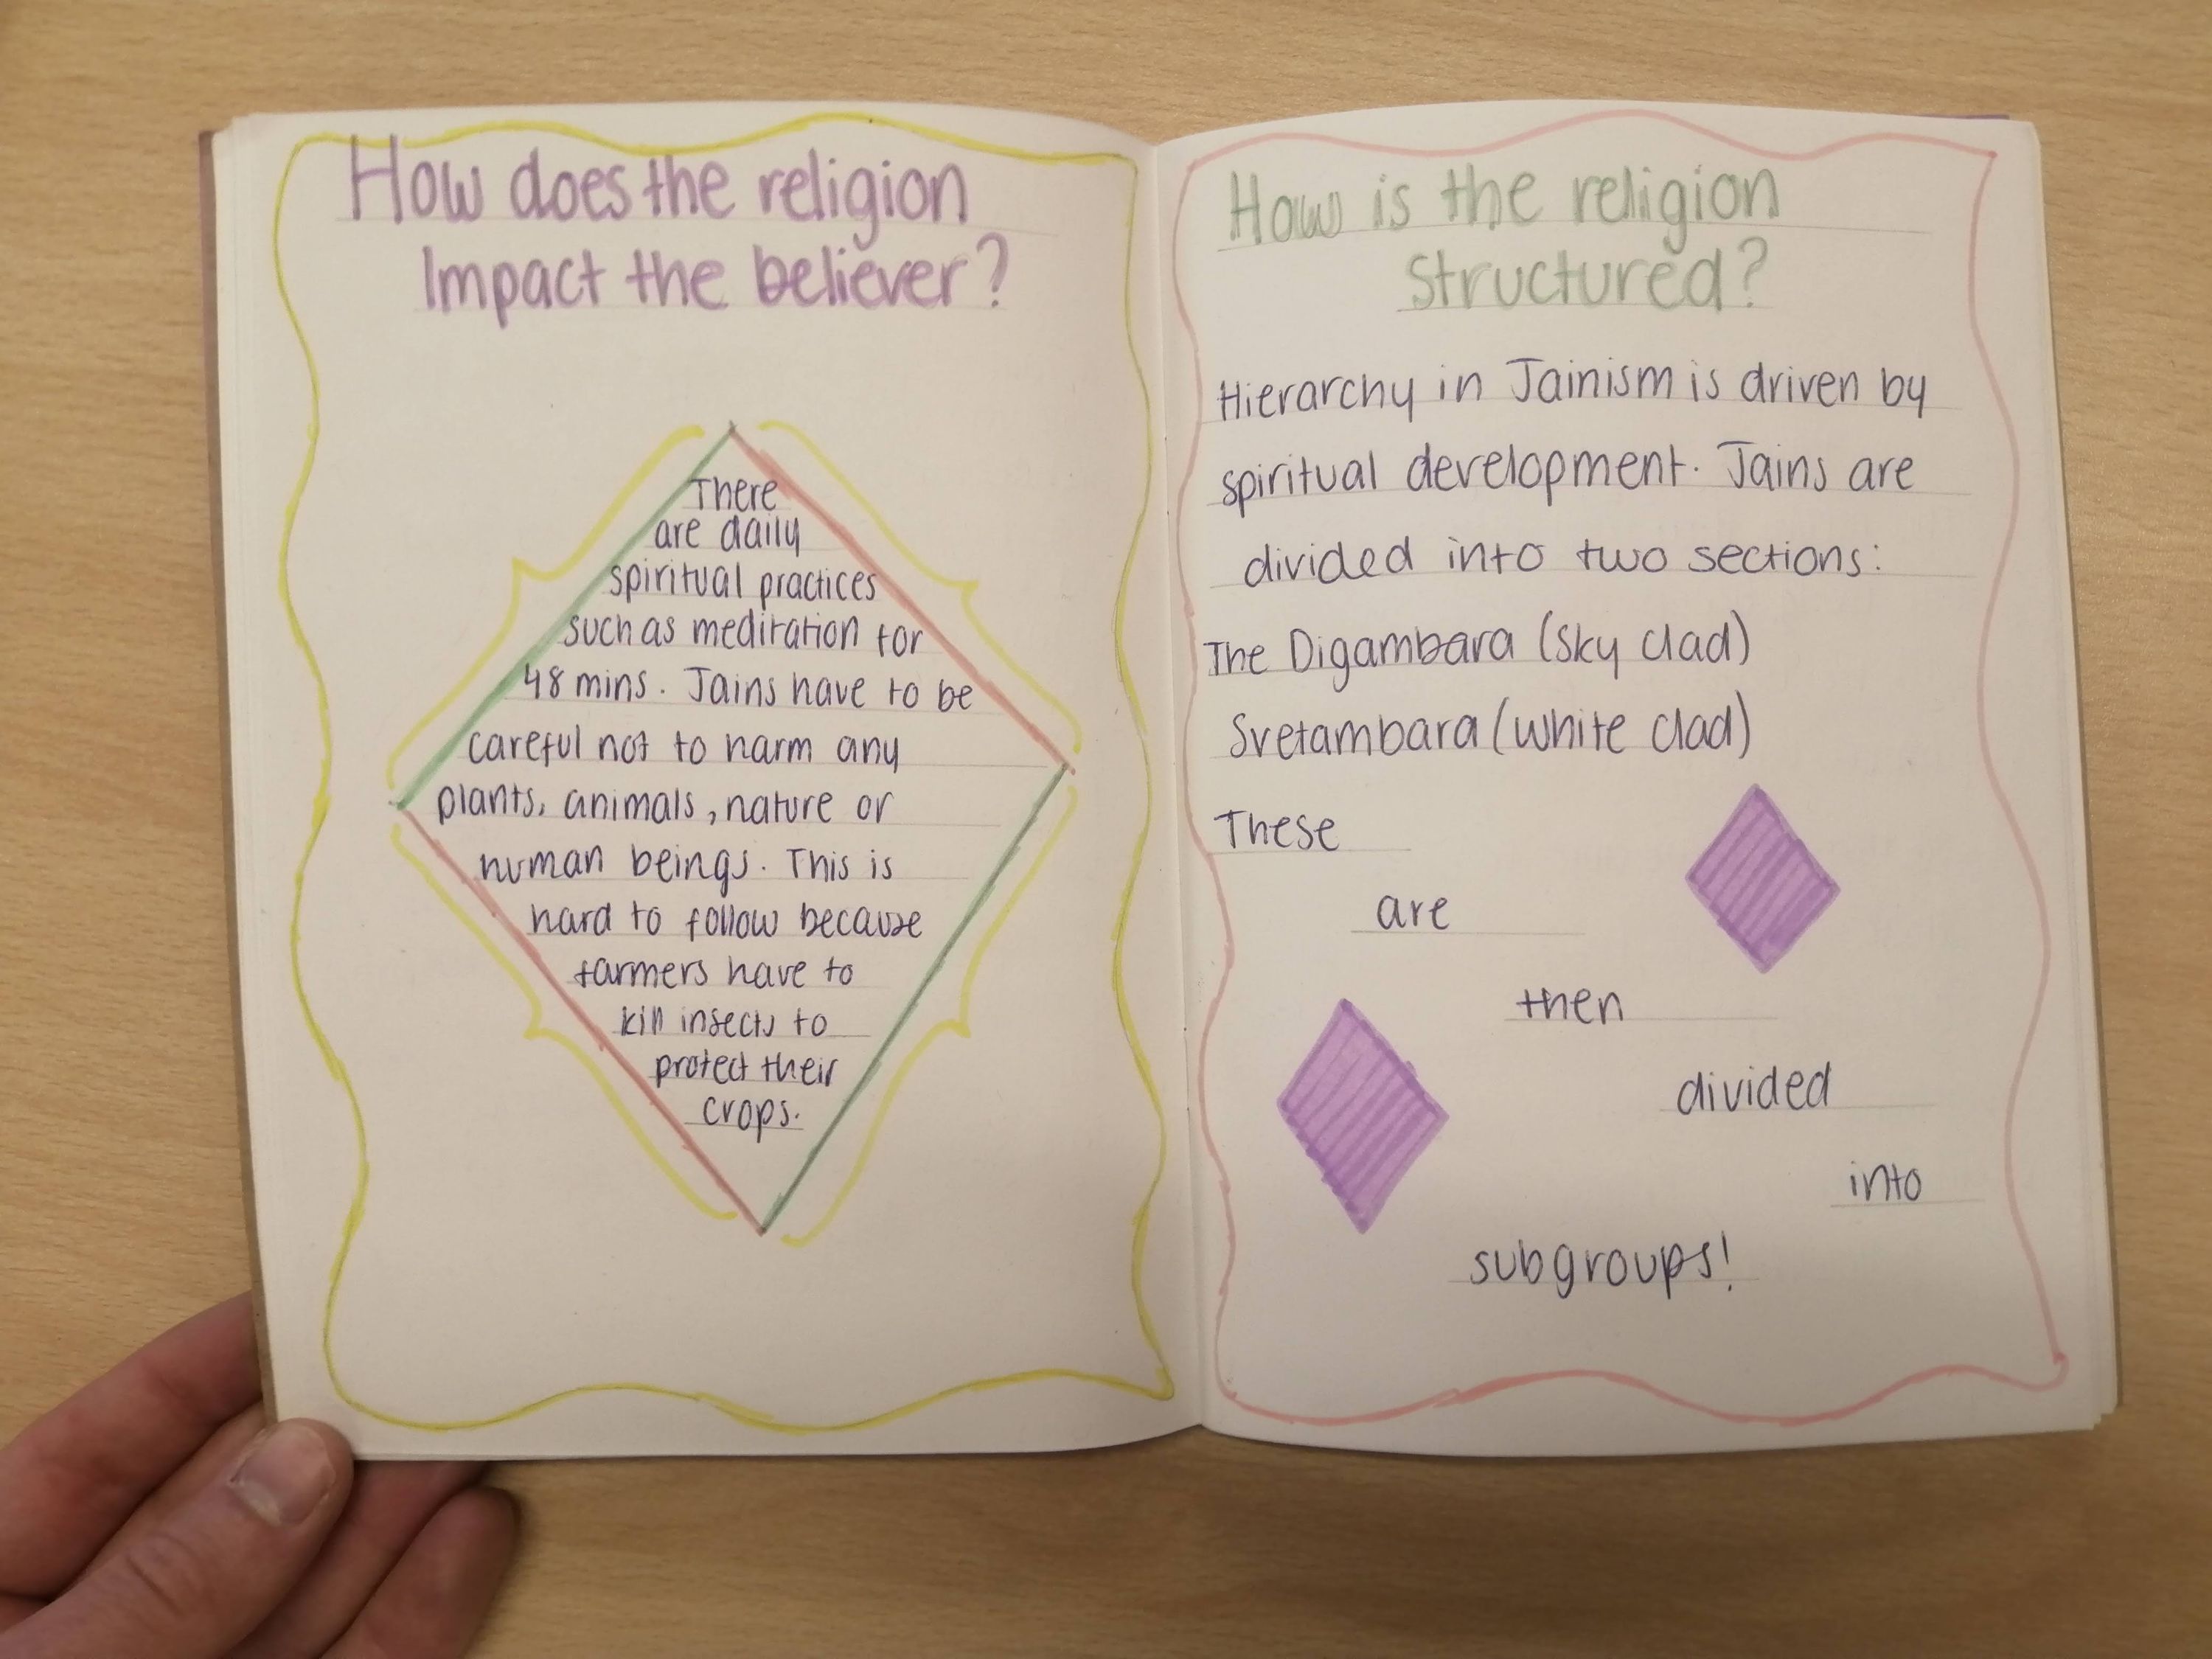 How does the religion
Impact the believer?
There
are daily
spiritual practices
such as meditation for
48 mins. Jains have to be
careful not to harm any
plants, animals, nature or
human beings. This is
hard to follow because
farmers have to
kill insects to
protect their
crops.
How is the religion
structured?
Hierarchy in Jainism is driven by
spiritual development. Jains are
divided into two sections:
The Digambara (sky clad)
Svetambara (white clad)
These
are
then
divided
into
subgroups!